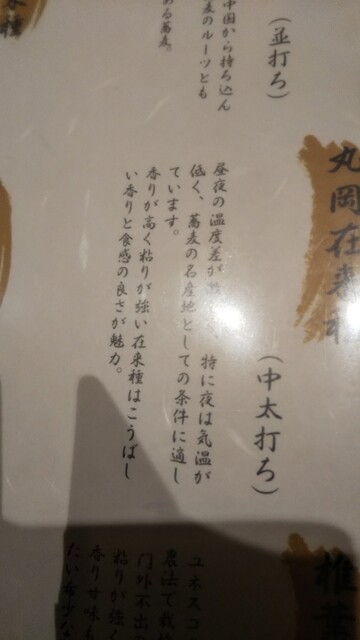 (並打ち)
中国から持ち込ん
麦のルーツとも
ある蕎麦。
来種
丸岡在来種
(中太打ち)
昼夜の温度差が 特に夜は気温が
低く、蕎麦の名産地としての条件に適し
ています。
香りが高く粘りが強い在来種はこうばし
い香りと食感の良さが魅力。
椎葉
ユネスコ
農法で栽培
門外不出
粘りが強く
香り甘味も
たい希少な